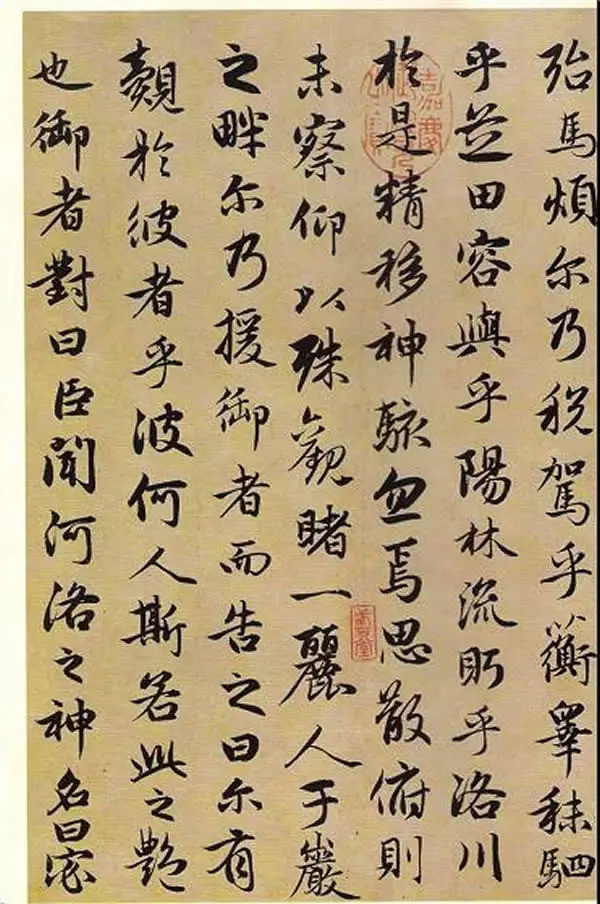 殆馬煩尔乃税駕乎蘅皋秣駟
乎芝田容與乎陽林流眄乎洛川
於是精移神駭忽焉思散俯則
未察仰以殊觀睹一麗人于巖
之畔尔乃援御者而告之曰尔有
覿於彼者乎彼何人斯若此之艷
也御者對曰臣聞河洛之神名曰宓